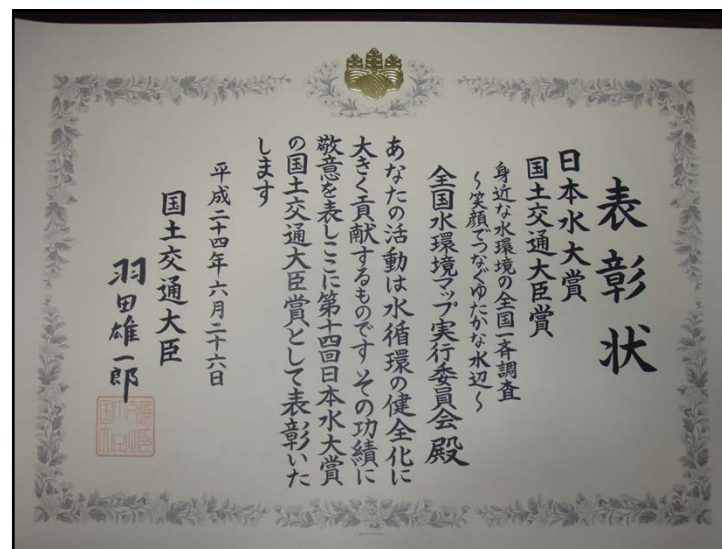 表彰状
日本水大賞
国土交通大臣賞
身近な水環境の全国一斉調査
～笑顔でつなぐゆたかな水辺～
全国水環境マップ実行委員会 殿
あなたの活動は水循環の健全化に
大きく貢献するものです その功績に
敬意を表しここに第十四回日本水大賞
の国土交通大臣賞として表彰いた
します
平成二十四年六月二十六日
国土交通大臣
羽田雄一郎